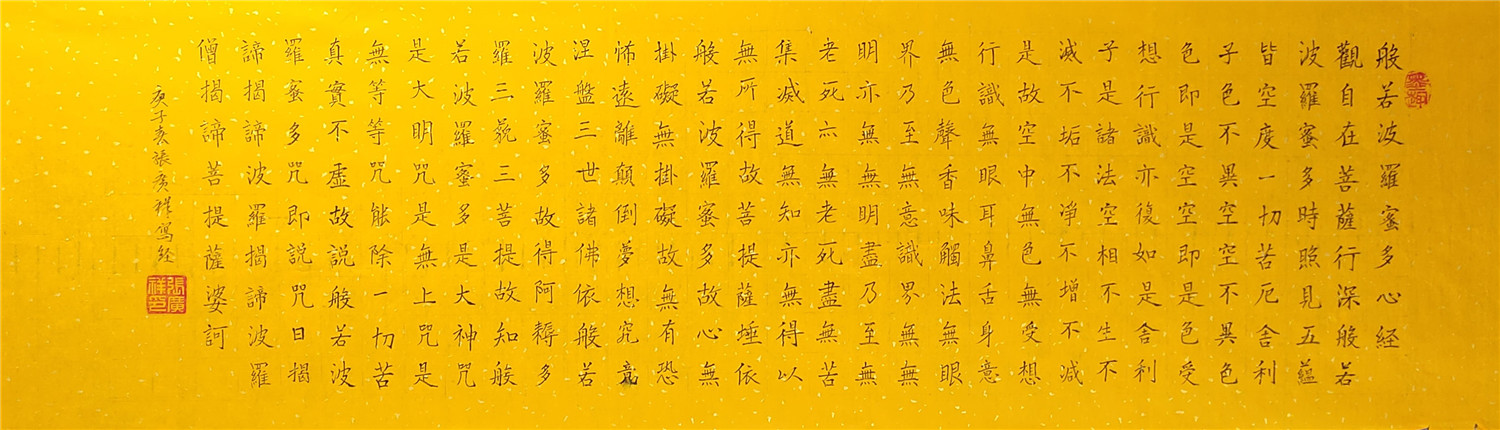 般若波羅蜜多心経
觀自在菩薩行深般若
波羅蜜多時照見五蘊
皆空度一切苦厄舍利
子色不異空空不異色
色即是空空即是色受
想行識亦復如是舍利
子是諸法空相不生不
滅不垢不淨不增不減
是故空中無色無受想
行識無眼耳鼻舌身意
無色聲香味觸法無眼
界乃至無意識界無無
明亦無無明盡乃至無
老死亦無老死盡無苦
集滅道無知亦無得以
無所得故菩提薩埵依
般若波羅蜜多故心無
掛礙無掛礙故無有恐
怖遠離顛倒夢想究竟
涅盤三世諸佛依般若
波羅蜜多故得阿耨多
羅三藐三菩提故知般
若波羅蜜多是大神咒
是大明咒是無上咒是
無等等咒能除一切苦
真實不虛故説般若波
羅蜜多咒即説咒曰揭
諦揭諦波羅揭諦波羅
僧揭諦菩提薩婆訶
庚子亥張廣祥寫経
張廣祥印